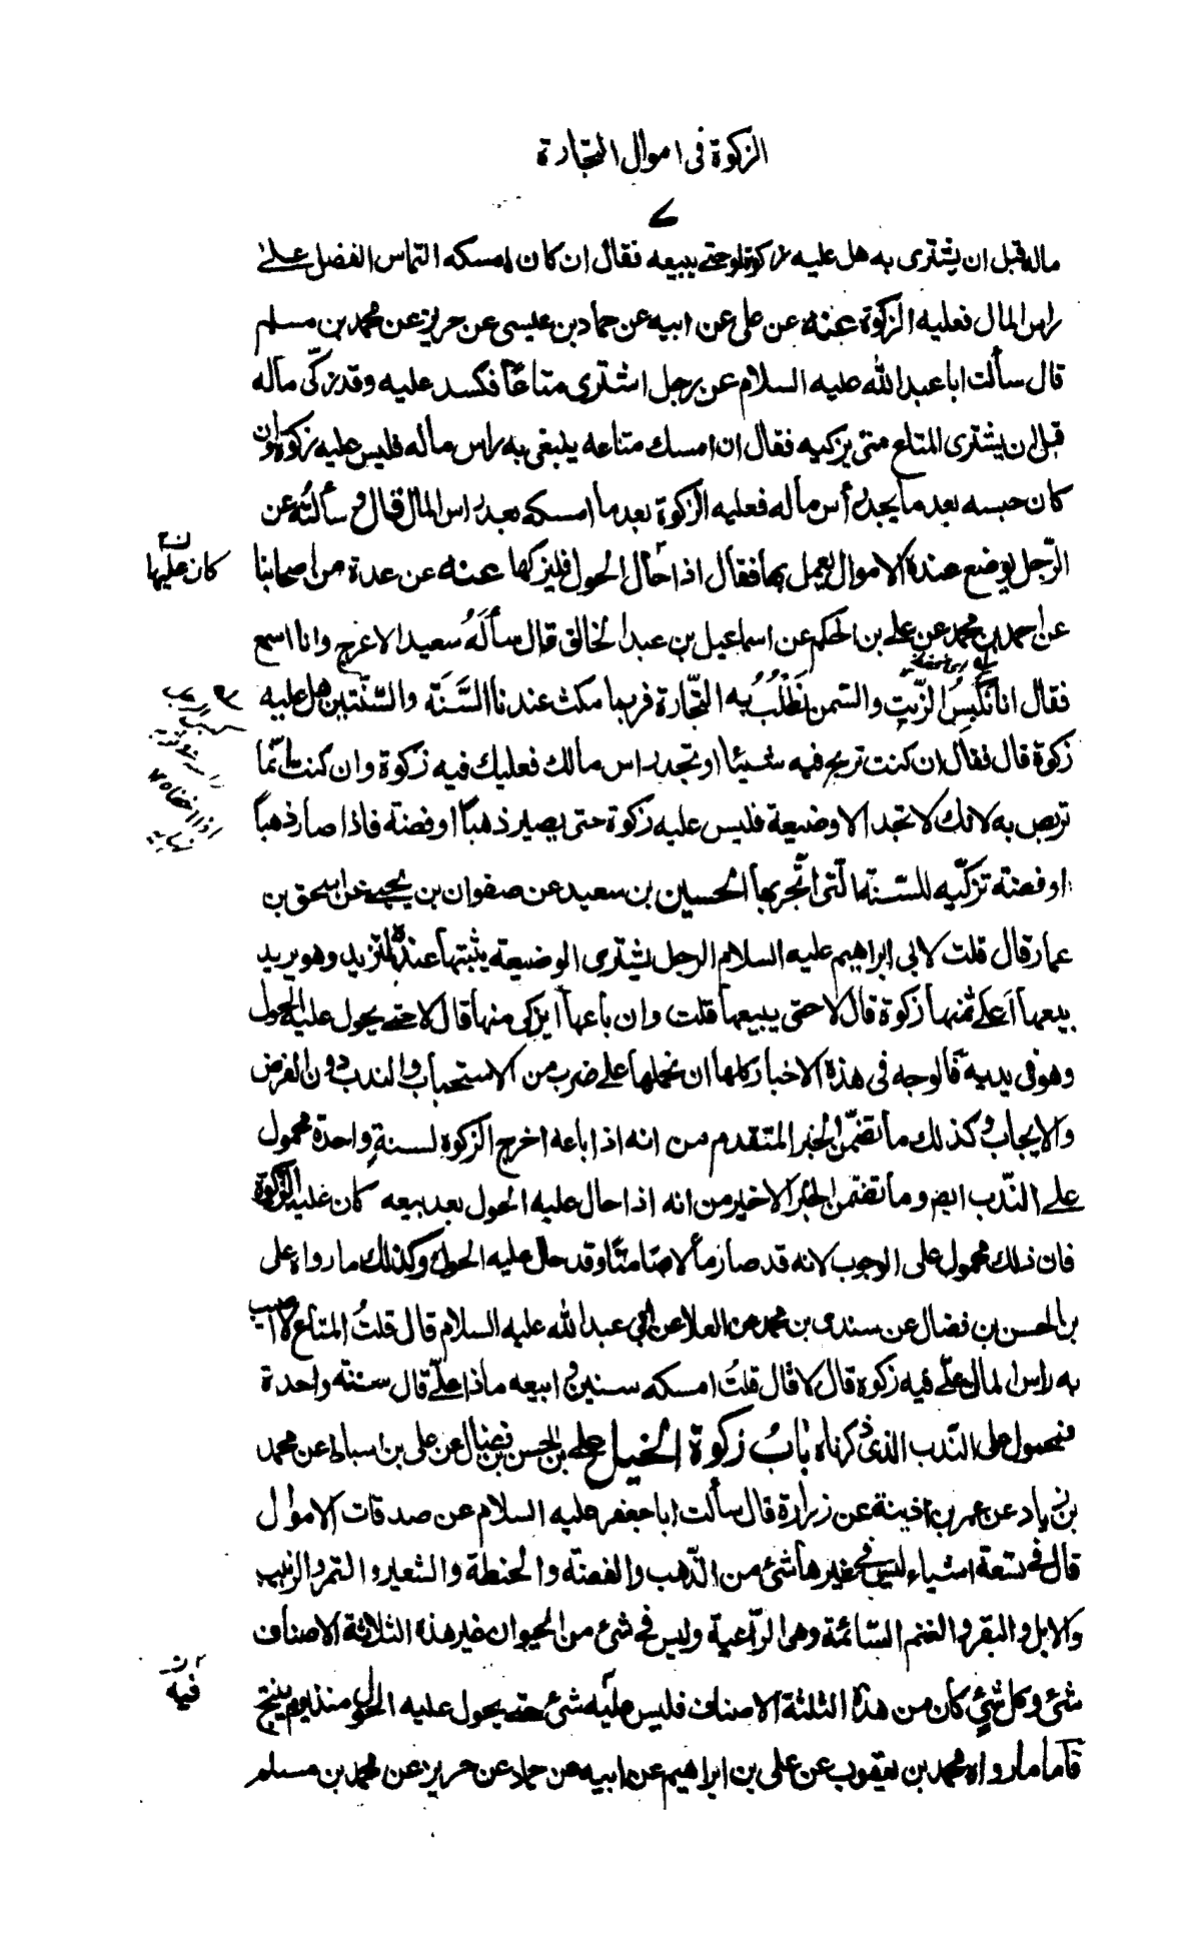 الزكوة فى اموال التجارة
٧
ماله قبل ان يشترى به هل عليه زكوة او حتى يبيعه فقال ان كان امسكه التماس الفضل على
راس المال فعليه الزكوة عنه عن على عن ابيه عن حماد بن عيسى عن حريز عن محمد بن مسلم
قال سألت ابا عبد الله عليه السلام عن رجل اشترى متاعًا فكسد عليه وقد زكّى ماله
قبل ان يشترى المتاع متى يزكيه فقال ان امسك متاعه يبتغى به راس ماله فليس عليه زكوة وان
كان حبسه بعد ما يجد رأس ماله فعليه الزكوة بعد ما امسكه بعد راس المال قال وسألته عن
الرّجل يوضع عنده الاموال يعمل بها فقال اذا حال الحول فليزكها عنه عن عدة من اصحابنا
كان عليها
عن احمد بن محمد عن على بن الحكم عن اسماعيل بن عبد الخالق قال سألَهُ سعيد الاعرج وانا اسمع
فقال انا نكبسُ الزّيت والسّمن نَطْلُبُ به التّجارة فربما مكث عندنا السَّنَة والسّنتين هل عليه
زكوة قال فقال ان كنت تربح فيه شيئا او تجد راس مالك فعليك فيه زكوة وان كنت انّما
تربص به لانك لا تجد الا وضيعة فليس عليه زكوة حتى يصير ذهبًا او فضة فاذا صار ذهبًا
او فضة تزكّيه للسّنة الّتى اتّجر بها الحسين بن سعيد عن صفوان بن يحيى عن اسحق بن
عمار قال قلت لابى ابراهيم عليه السلام الرجل يشترى الوضيعة يثبتها عنده لتزيد وهو يريد
بيعها أعلى ثمنها زكوة قال لا حتى يبيعها قلت وان باعها أيزكى منها قال لا حتى يحول عليه الحول
وهو فى يديه فالوجه فى هذه الاخبار كلها ان نحملها على ضرب من الاستحباب والندب دون الفرض
والايجاب وكذلك ما تضمّن الخبر المتقدم من انه اذا باعه اخرج الزكوة لسنةٍ واحدة محمول
على النّدب ايضا وما تضمّن الخبر الاخير من انه اذا حال عليه الحول بعد بيعه كان عليه الزكوة
فان ذلك محمول على الوجوب لانه قد صار مالا صامتًا وقد حال عليه الحول وكذلك ما رواه على
بن الحسن بن فضال عن سندى بن محمد عن العلا عن ابى عبد الله عليه السلام قال قلتُ المتاع لا اصيب
به راس المال علّى فيه زكوة قال لا قال قلتُ امسكه سنين ثم ابيعه ماذا علىّ قال سنة واحدة
فمحمول على النّدب الذى ذكرناه بَابُ زكوة الخيل على بن الحسن بن فضال عن على بن اسباط عن محمد
بن زياد عن عمر بن اذينة عن زرارة قال سألت ابا جعفر عليه السلام عن صدقات الاموال
قال فى تسعة اشياء ليس فى غيرها شئ من الذّهب والفضّة والحنطة والشعير والتمر والزبيب
والابل والبقر والغنم السّائمة وهى الرّاعية وليس فى شئ من الحيوان غير هذه الثلاثة الاصناف
شئ وكل شئٍ كان من هذه الثلثة الاصناف فليس عليه شئ حتى يحول عليه الحول منذ يوم ينتج
فيه
فأما ما رواه محمد بن يعقوب عن على بن ابراهيم عن ابيه عن حماد عن حريز عن محمد بن مسلم